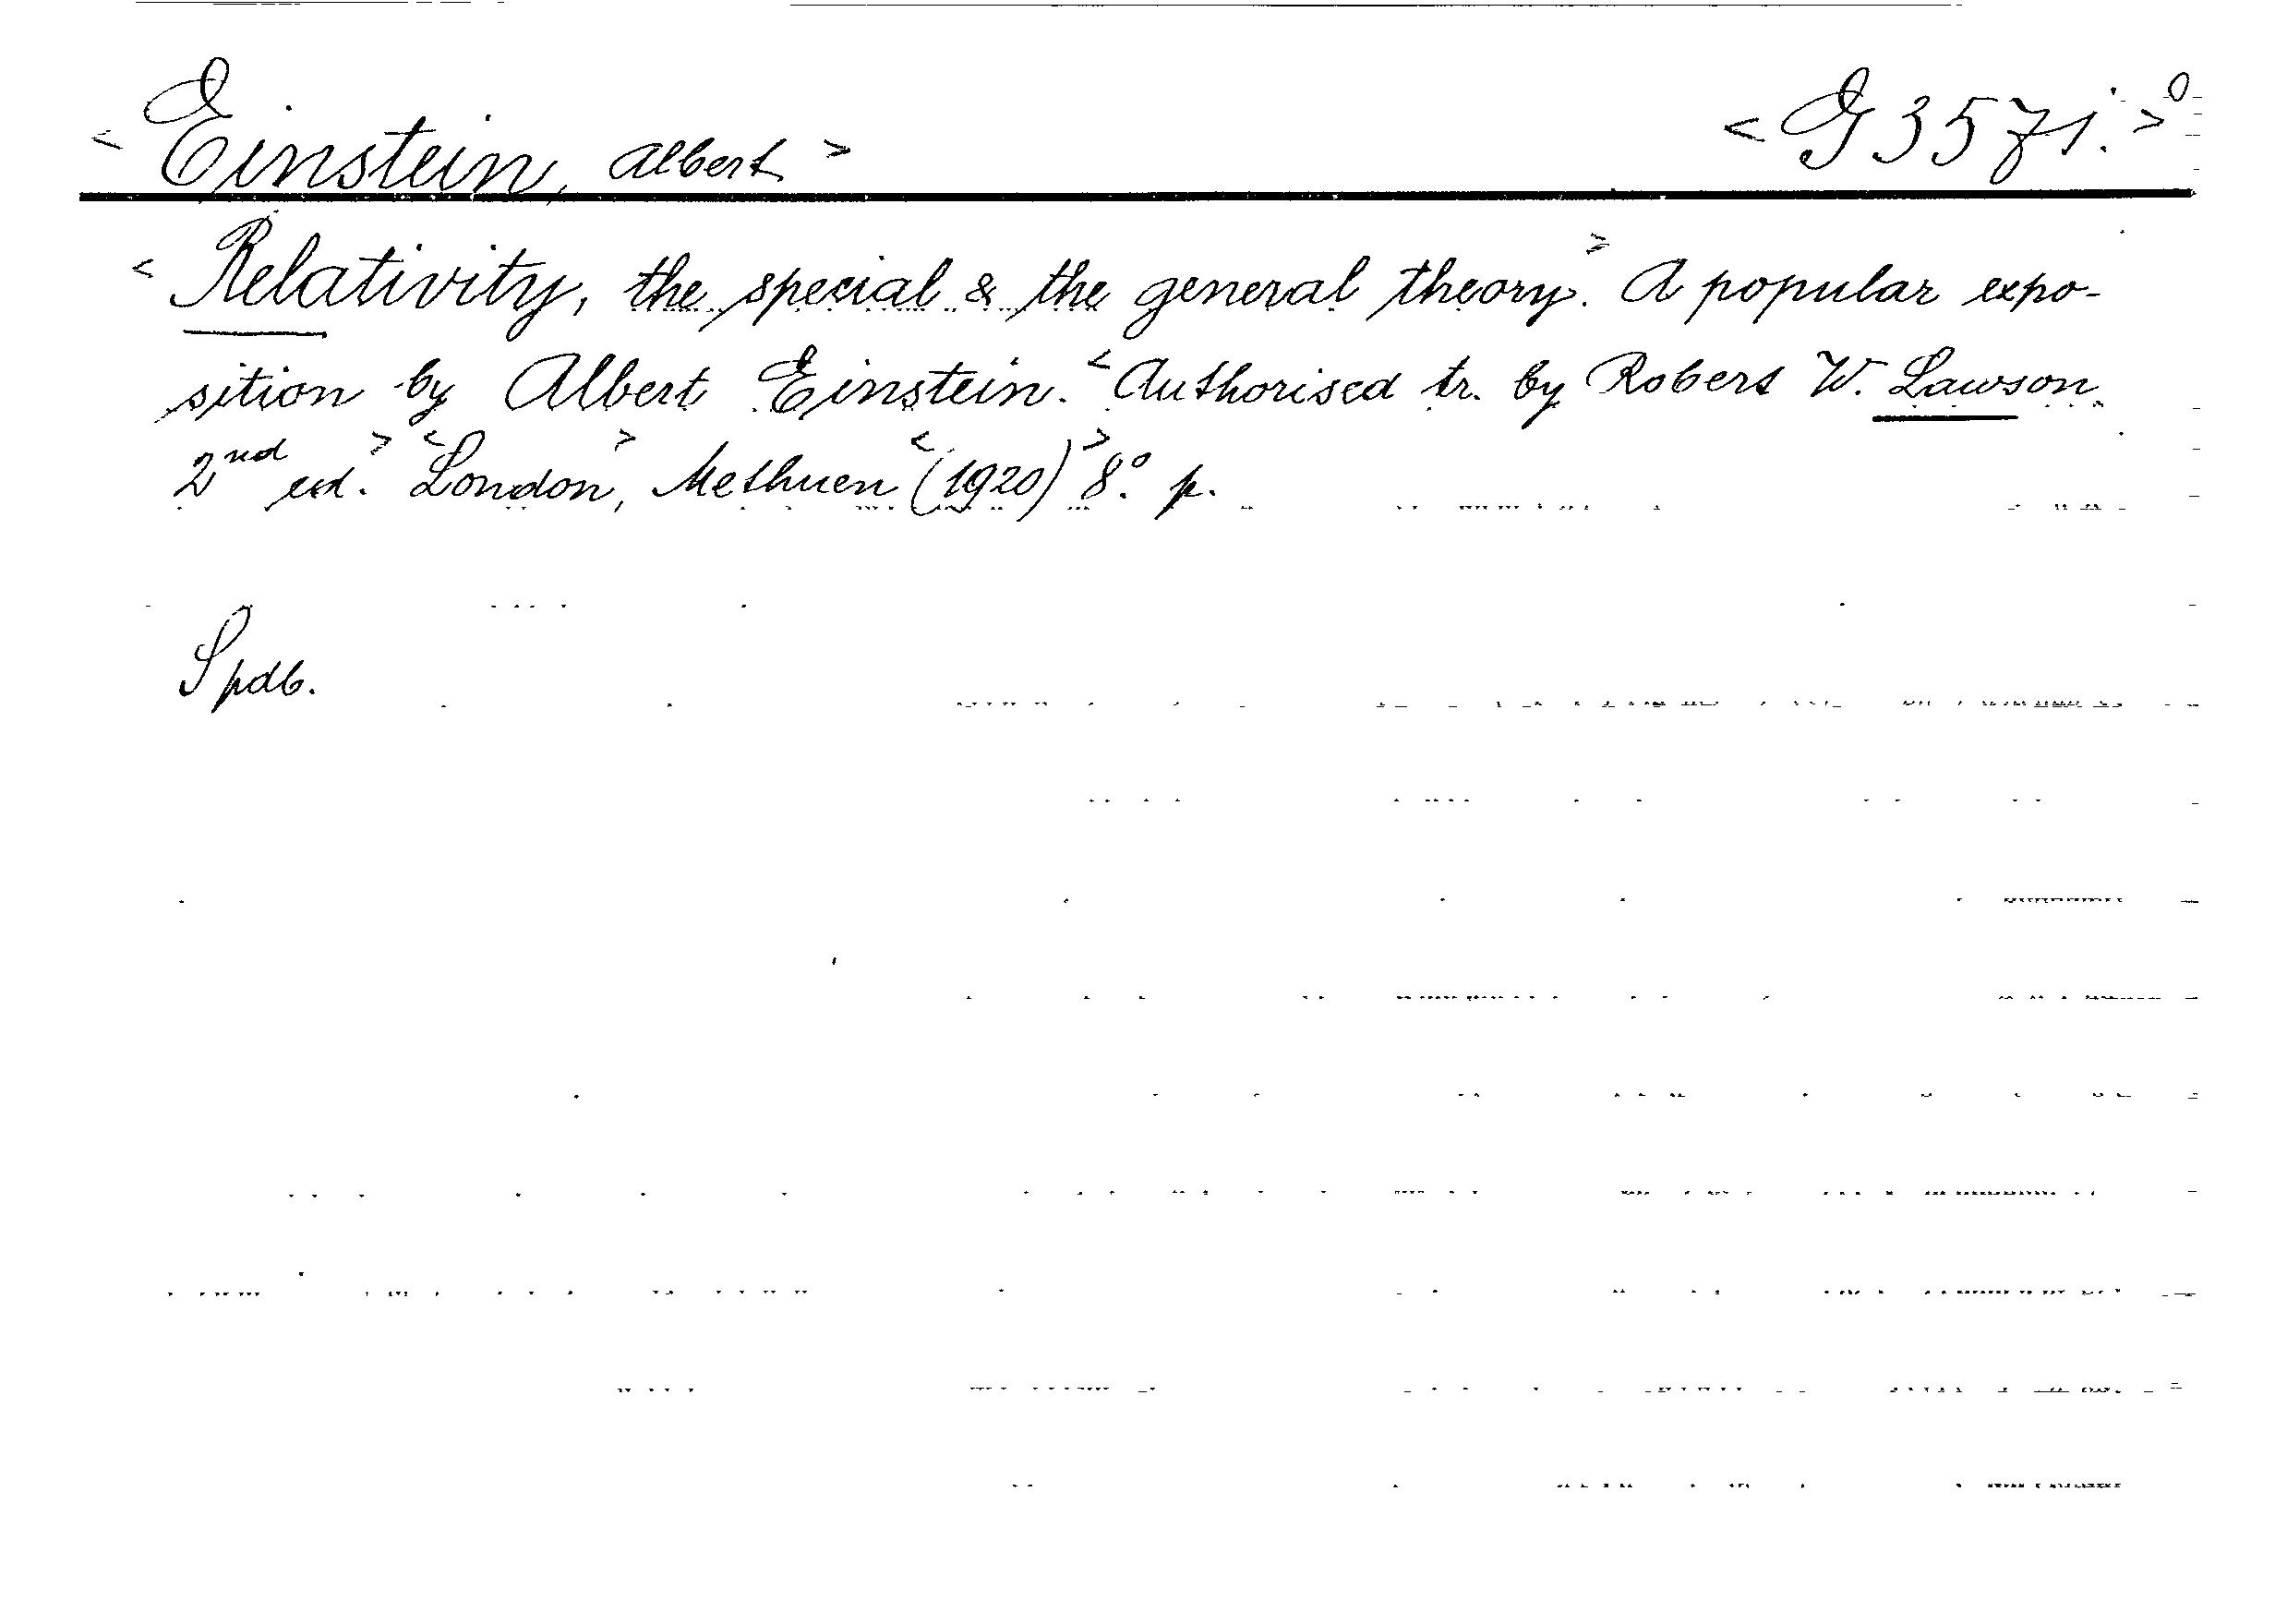 < Einstein, Albert > < G 3571. > 0
< Relativity, the special & the general theory. > A popular expo-
sition by Albert Einstein. < Authorised tr. by Robert W. Lawson.
2nd ed. > < London >, Methuen < (1920) > 8° p.
Spdb.